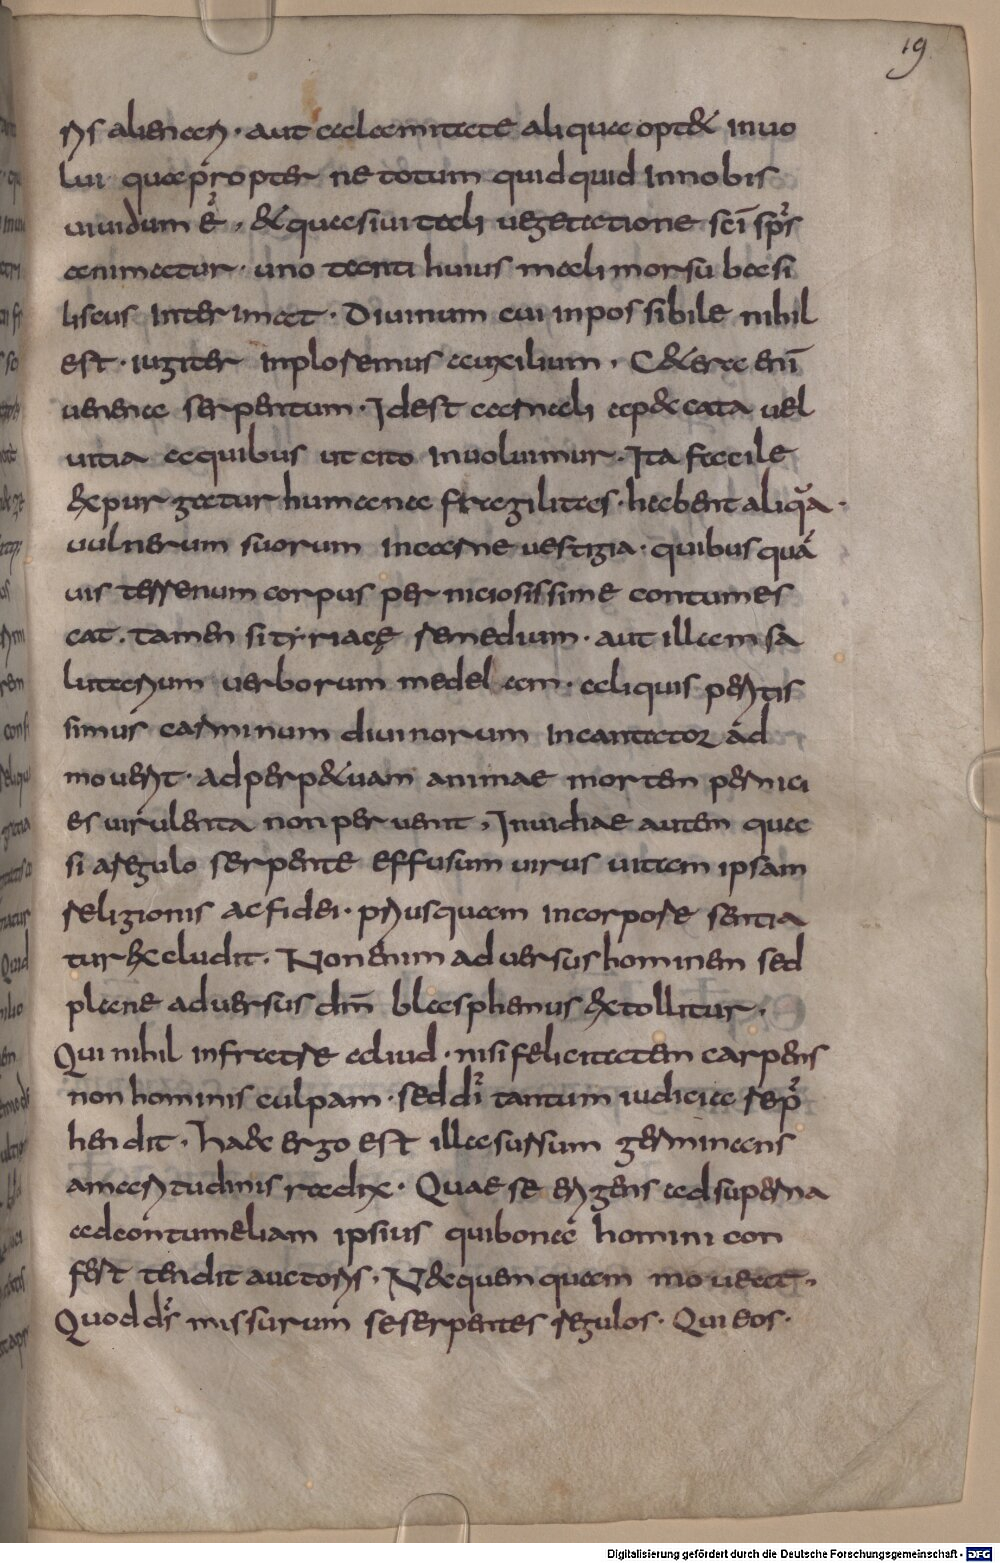 19
ris alienaeri. aut calamitate aliqua optet inuo
lui quapropter ne totum quidquid Innobis
uiuidum ē, & quasi uitali uegetatione sc̄i sp̄s
animatur. uno tanti huius mali morsu basi
liscus Interimat. Diuinum cui inpossibile nihil
est. iugiter Inploremus auxilium. C&era eni̅
uenena serpentum. Id est carnali app&ata uel
uitia a quibus ut cito Inuoluimur. Ita facile
expurgatur humanae fragilitas. habent aliqua̅.
uulnerum suorum Incarne uestigia. quibus qua̅
uis terrenum corpus perniciosissime contumes
cat. tamen si tyriacę remedium. aut illam sa
lutarium uerborum medelam. aliquis peritis
simus carminum diuinorum Incantator ad
mouerit. ad perp&uam animae mortem pernici
es uirulenta non peruenit. Inuidiae autem qua
si a regulo serpente effusum uirus uitam ipsam
religionis ac fidei. priusquam incorpore sentia
tur excludit. Non enim aduersus hominem sed
plane aduersus dm̄ blasphemus extollitur.
Qui nihil infratre aliud. nisi felicitatem carpens
non hominis culpam. sed di̅ tantum iudicia rep̄
hendit. Haec ergo est illa sursum germinans
amaritudinis radix. Quae se erigens ad superna
ad contumeliam ipsius qui bona homini con
fert tendit auctoris. Nec quenquam moueat.
Quod ds̄ missurum se serpentes regulos. Qui eos.
Digitalisierung gefördert durch die Deutsche Forschungsgemeinschaft - DFG